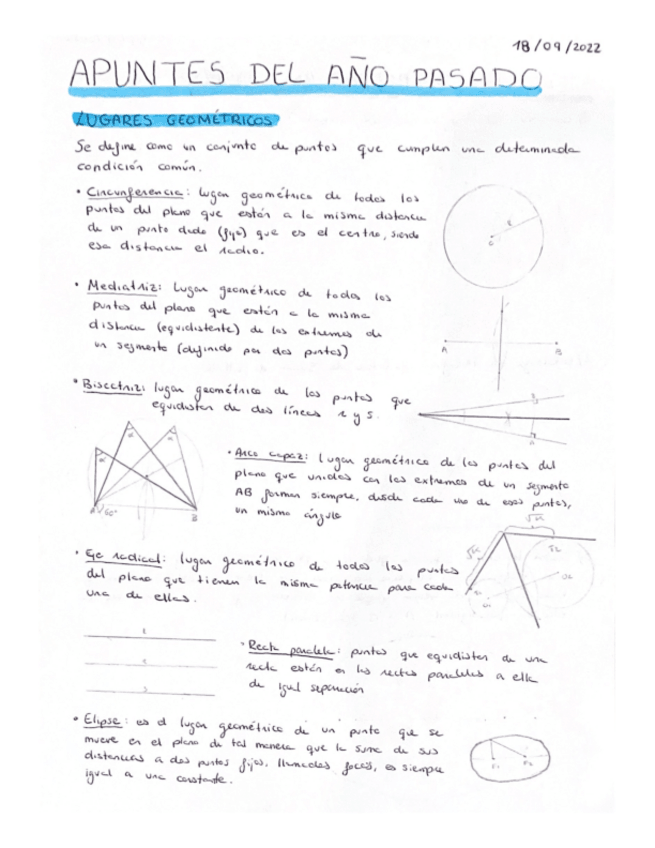 18/09/2022
APUNTES DEL AÑO PASADO
LUGARES GEOMÉTRICOS
Se define como un conjunto de puntos que cumplen una determinada
condición común.
• Circunferencia: lugar geométrico de todos los
puntos del plano que están a la misma distancia
de un punto dado (fijo) que es el centro, siendo
esa distancia el radio.
R
C
• Mediatriz: Lugar geométrico de todos los
puntos del plano que están a la misma
distancia (equidistante) de los extremos de
un segmento (definido por dos puntos)
A B
• Bisectriz: lugar geométrico de los puntos que
equidisten de dos líneas r y s.
• Arco capaz: lugar geométrico de los puntos del
plano que unidos con los extremos de un segmento
AB forman siempre, desde cada uno de esos puntos,
un mismo ángulo
A 60° B
• Eje radical: lugar geométrico de todos los puntos
del plano que tienen la misma potencia para cada
una de ellas.
√K √K
• Recta paralela: puntos que equidisten de una
recta están en las rectas paralelas a ella
de igual separación
• Elipse: es el lugar geométrico de un punto que se
mueve en el plano de tal manera que la suma de sus
distancias a dos puntos fijos, llamados focos, es siempre
igual a una constante.
F1 F2